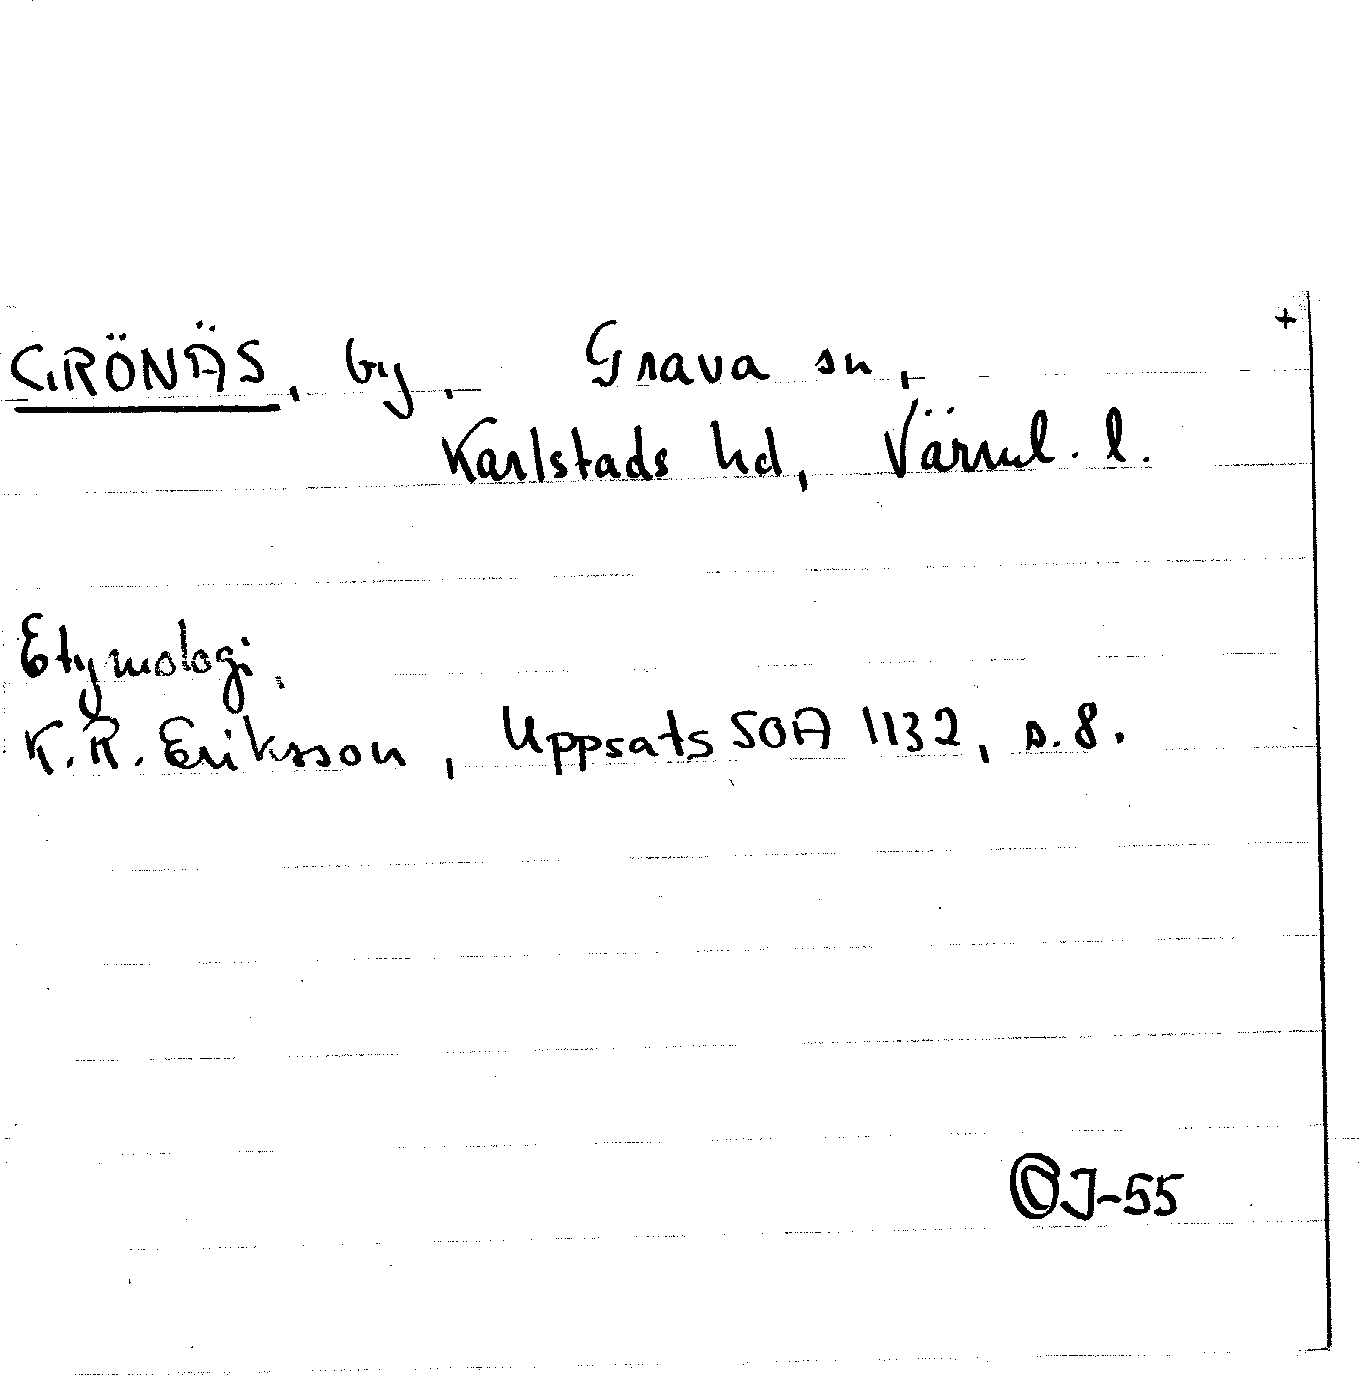 +
GRÖNÄS, by, Grava sn,
Karlstads hd, Värml. l.
Etymologi.
K.R. Eriksson, Uppsats SOA 1132, s. 8.
©J-55